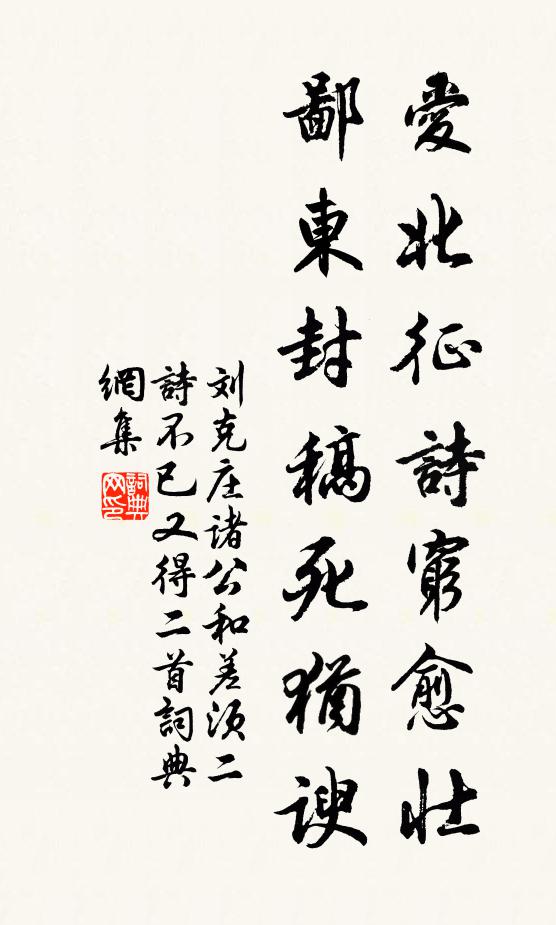 愛北征詩窮愈壯
鄙東封稿死猶諛
刘克庄诸公和差须二
詩不已又得二首詞典
網集
詞典
网印